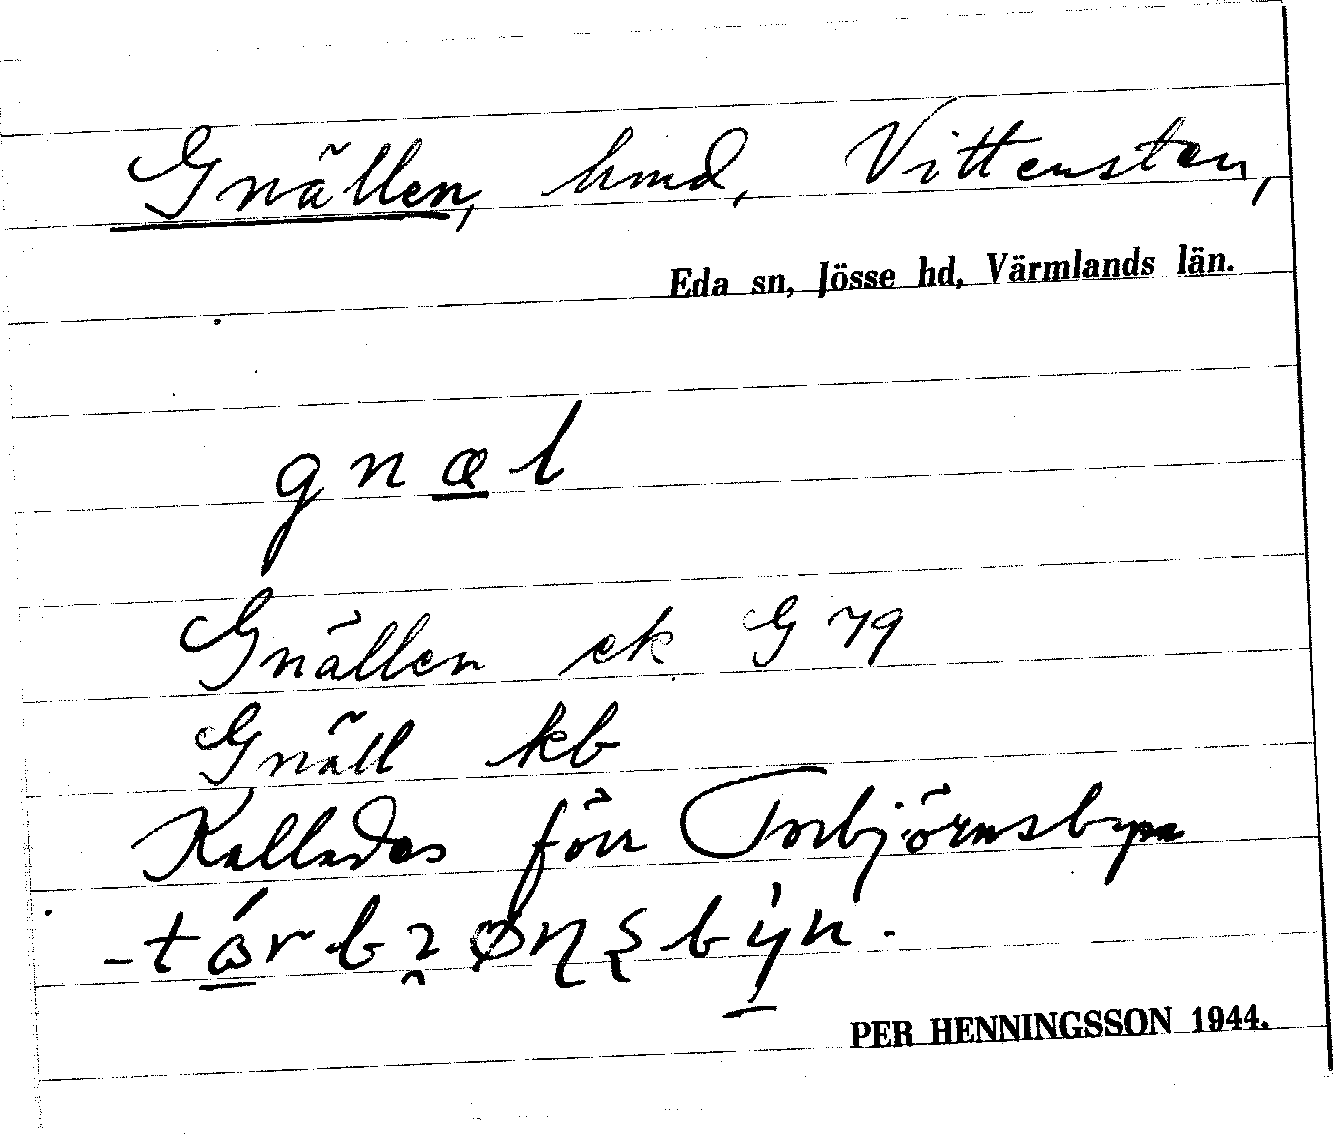 Gnällen, hmd, Vittensten,
Eda sn, Jösse hd, Värmlands län.
gnæl
Gnällen ek G 79
Gnäll kb
Kallades förr Torbjörnsbyn
PER HENNINGSSON 1944.